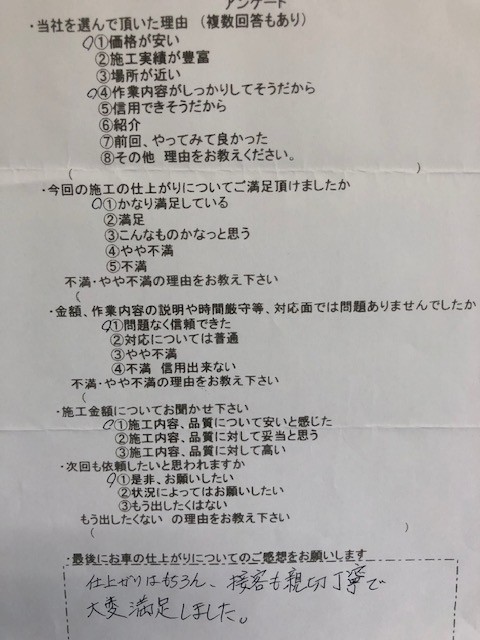 アンケート
・当社を選んで頂いた理由 (複数回答もあり)
①価格が安い
②施工実績が豊富
③場所が近い
④作業内容がしっかりしてそうだから
⑤信用できそうだから
⑥紹介
⑦前回、やってみて良かった
⑧その他 理由をお教えください。
( )
・今回の施工の仕上がりについてご満足頂けましたか
①かなり満足している
②満足
③こんなものかなっと思う
④やや不満
⑤不満
不満・やや不満の理由をお教え下さい
(
・金額、作業内容の説明や時間厳守等、対応面では問題ありませんでしたか
①問題なく信頼できた
②対応については普通
③やや不満
④不満 信用出来ない
不満・やや不満の理由をお教え下さい
(
・施工金額についてお聞かせ下さい
①施工内容、品質について安いと感じた
②施工内容、品質に対して妥当と思う
③施工内容、品質に対して高い
・次回も依頼したいと思われますか
①是非、お願いしたい
②状況によってはお願いしたい
③もう出したくはない
もう出したくない の理由をお教え下さい
( )
・最後にお車の仕上がりについてのご感想をお願いします
仕上がりはもちろん、接客も親切丁寧で
大変満足しました。